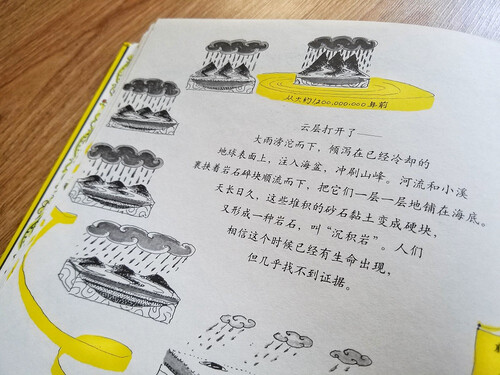 从大约1,200,000,000年前
云层打开了——
大雨滂沱而下，倾泻在已经冷却的
地球表面上，注入海盆，冲刷山峰。河流和小溪
裹挟着岩石碎块顺流而下，把它们一层一层地铺在海底。
天长日久，这些堆积的砂石黏土变成硬块，
又形成一种岩石，叫“沉积岩”。人们
相信这个时候已经有生命出现，
但几乎找不到证据。